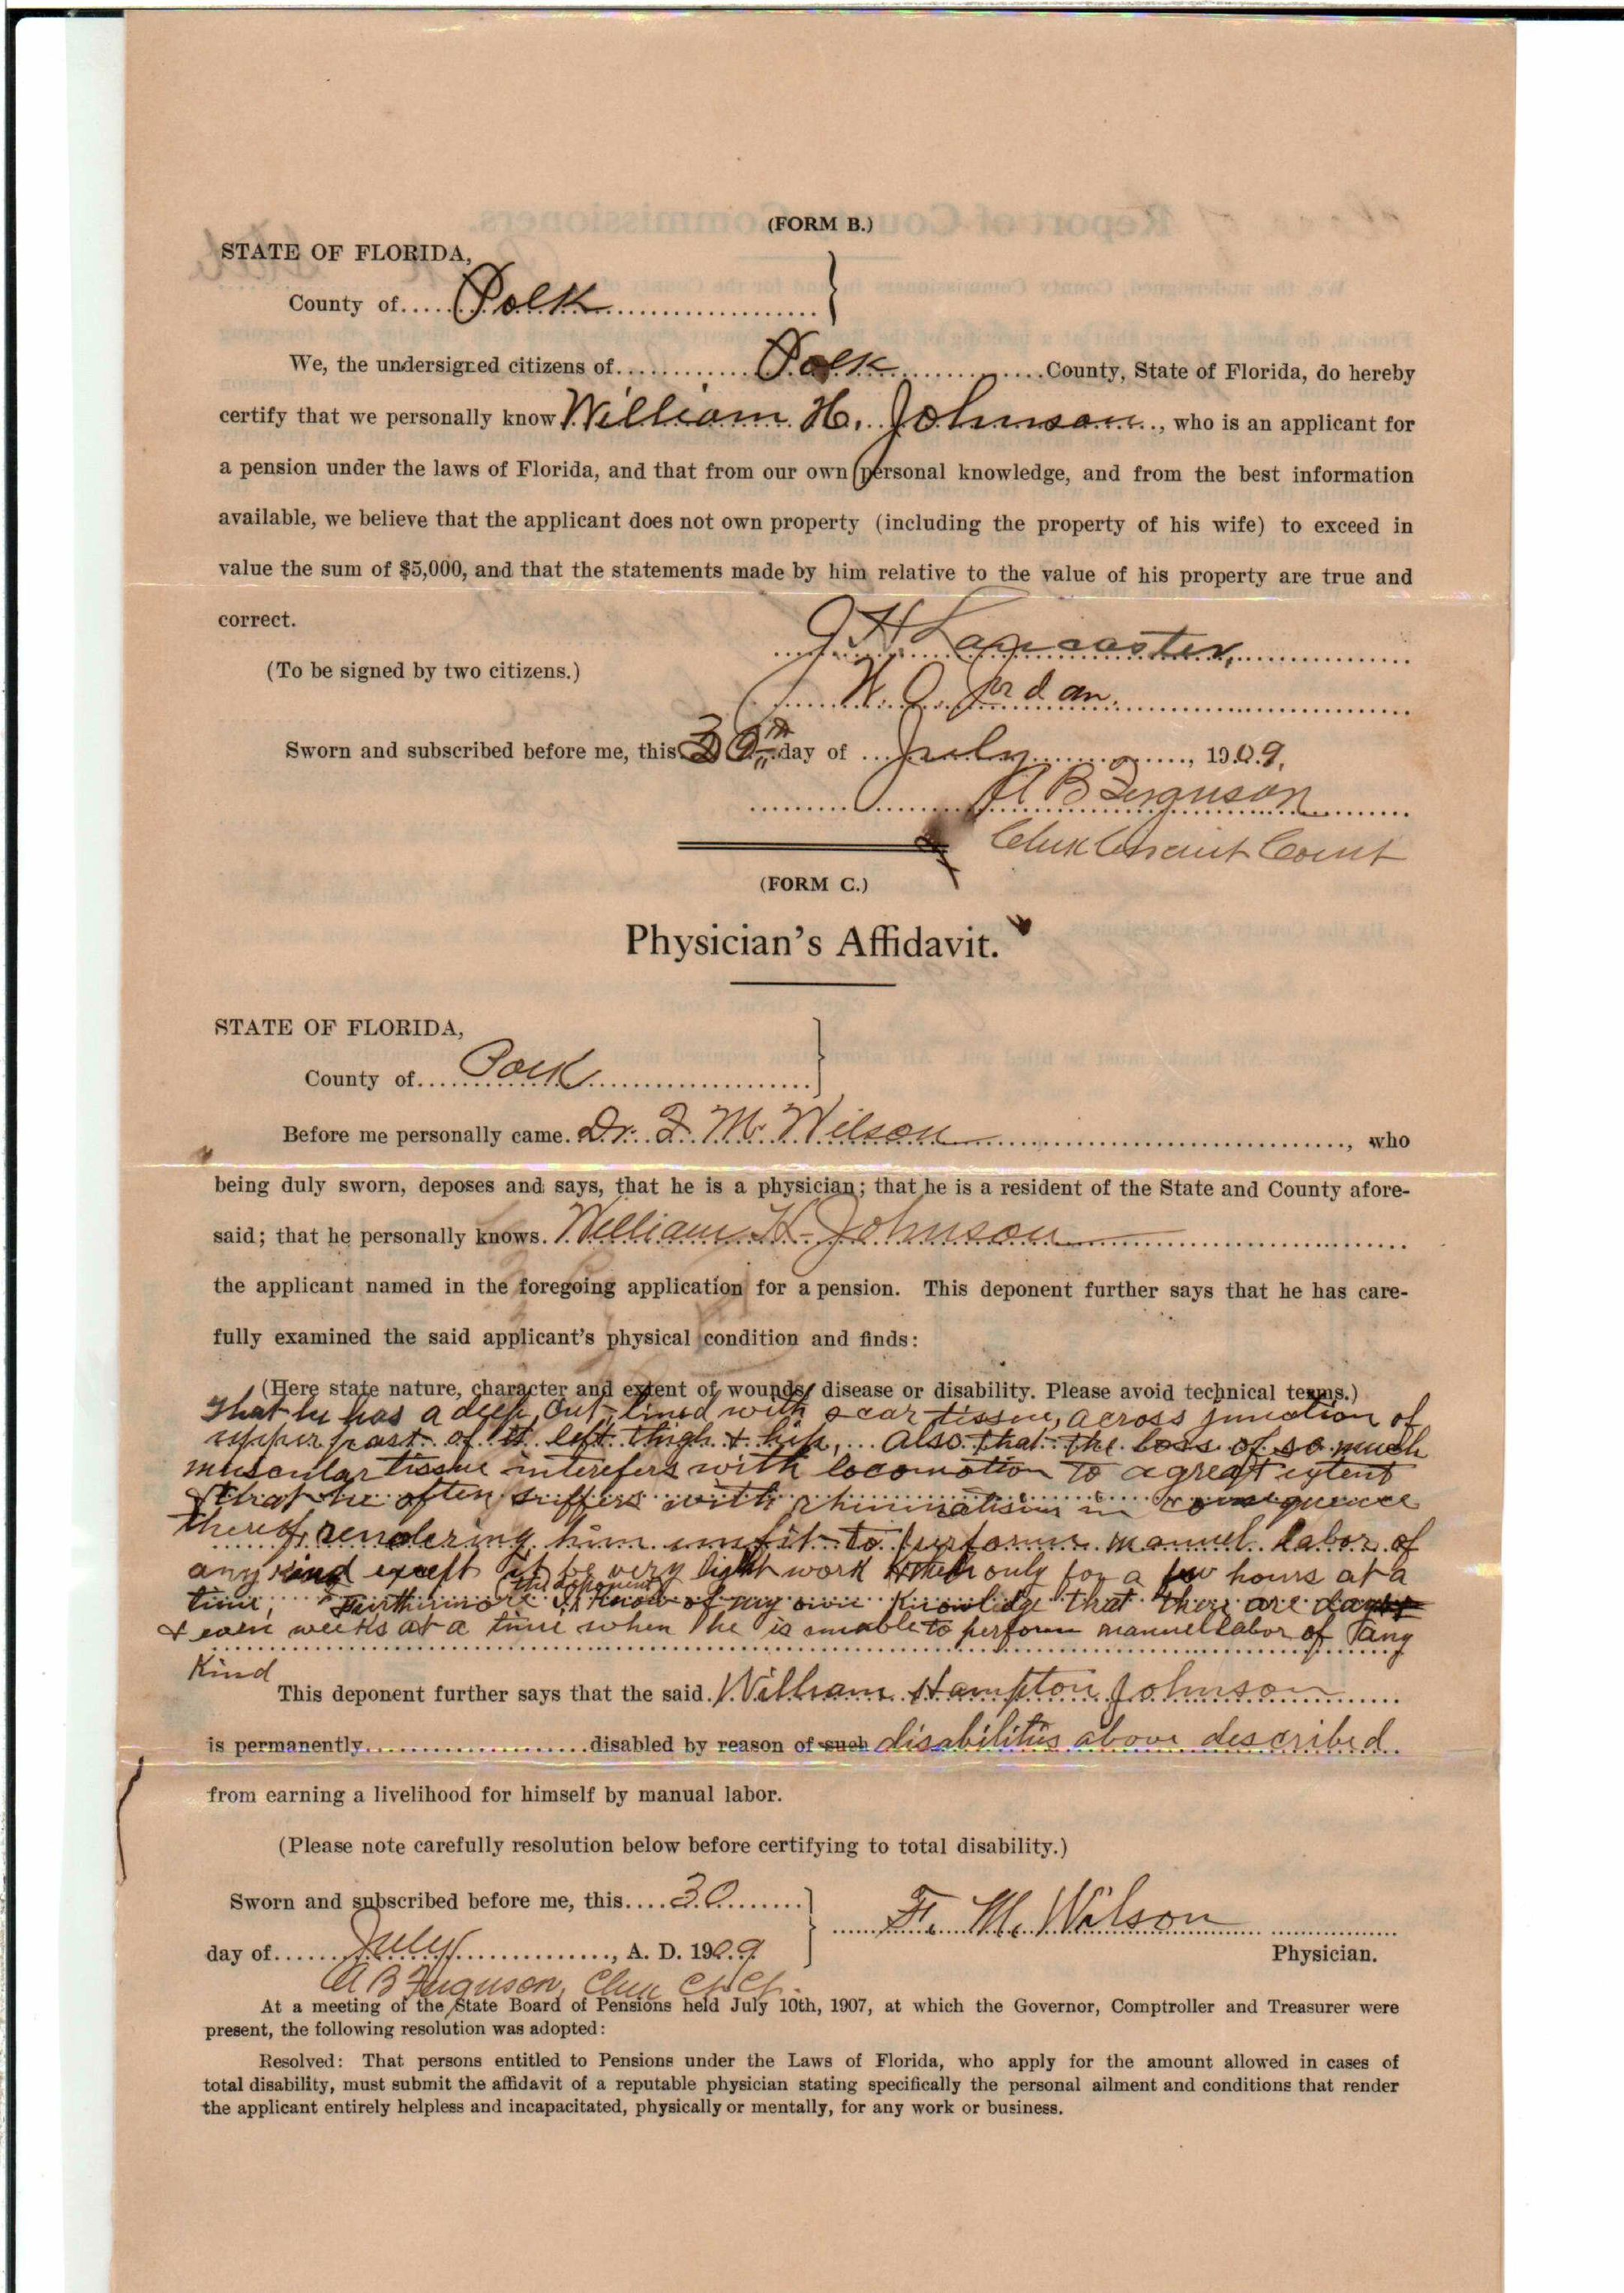 (FORM B.)
STATE OF FLORIDA,
County of.... Polk ....................}
We, the undersigned citizens of............ Polk ............County, State of Florida, do hereby
certify that we personally know William H. Johnson, who is an applicant for
a pension under the laws of Florida, and that from our own personal knowledge, and from the best information
available, we believe that the applicant does not own property (including the property of his wife) to exceed in
value the sum of $5,000, and that the statements made by him relative to the value of his property are true and
correct.
J H Lancaster,
(To be signed by two citizens.)
W. O. Jordan.
Sworn and subscribed before me, this 30th day of July, 1909.
A B Ferguson
Clerk Circuit Court
(FORM C.)
Physician's Affidavit.
STATE OF FLORIDA,
County of.... Polk ....................}
Before me personally came. Dr. F. M. Wilson, who
being duly sworn, deposes and says, that he is a physician; that he is a resident of the State and County afore-
said; that he personally knows. William H. Johnson
the applicant named in the foregoing application for a pension. This deponent further says that he has care-
fully examined the said applicant's physical condition and finds:
(Here state nature, character and extent of wounds, disease or disability. Please avoid technical terms.)
that he has a deep cut, lined with scar tissue, across junction of
upper part of left thigh & hip, also that the loss of so much
muscular tissue interefers with locomotion to a great extent
& that he often suffers with rhumatism in consequence
thereof, rendering him unfit to perform manuel labor of
any kind except it be very light work & then only for a few hours at a
time, Furthermore I (the deponent) know of my own Knowledge that there are days
& even weeks at a time when he is unable to perform manuel labor of any
Kind
This deponent further says that the said. William Hampton Johnson
is permanently....................disabled by reason of such disabilities above described
from earning a livelihood for himself by manual labor.
(Please note carefully resolution below before certifying to total disability.)
Sworn and subscribed before me, this.... 30 ........}
F. M. Wilson
day of...... July ..............., A. D. 1909
Physician.
A B Ferguson, Clerk Ct Ct.
At a meeting of the State Board of Pensions held July 10th, 1907, at which the Governor, Comptroller and Treasurer were
present, the following resolution was adopted:
Resolved: That persons entitled to Pensions under the Laws of Florida, who apply for the amount allowed in cases of
total disability, must submit the affidavit of a reputable physician stating specifically the personal ailment and conditions that render
the applicant entirely helpless and incapacitated, physically or mentally, for any work or business.